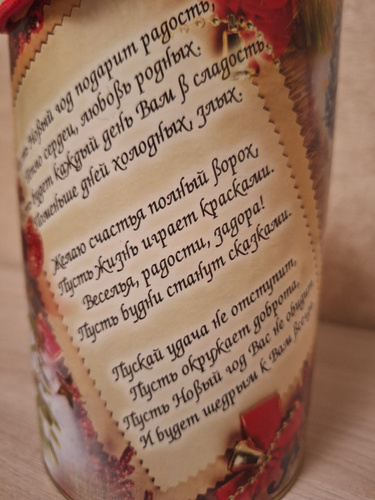 Новый год подарит радость,
сердец, любовь родных.
будет каждый день Вам в сладость,
Поменьше дней холодных, злых.
Желаю счастья полный ворох,
Пусть жизнь играет красками.
Веселья, радости, задора!
Пусть будни станут сказками.
Пускай удача не отступит,
Пусть окружает доброта,
Пусть Новый год Вас не обидит
И будет щедрым к Вам